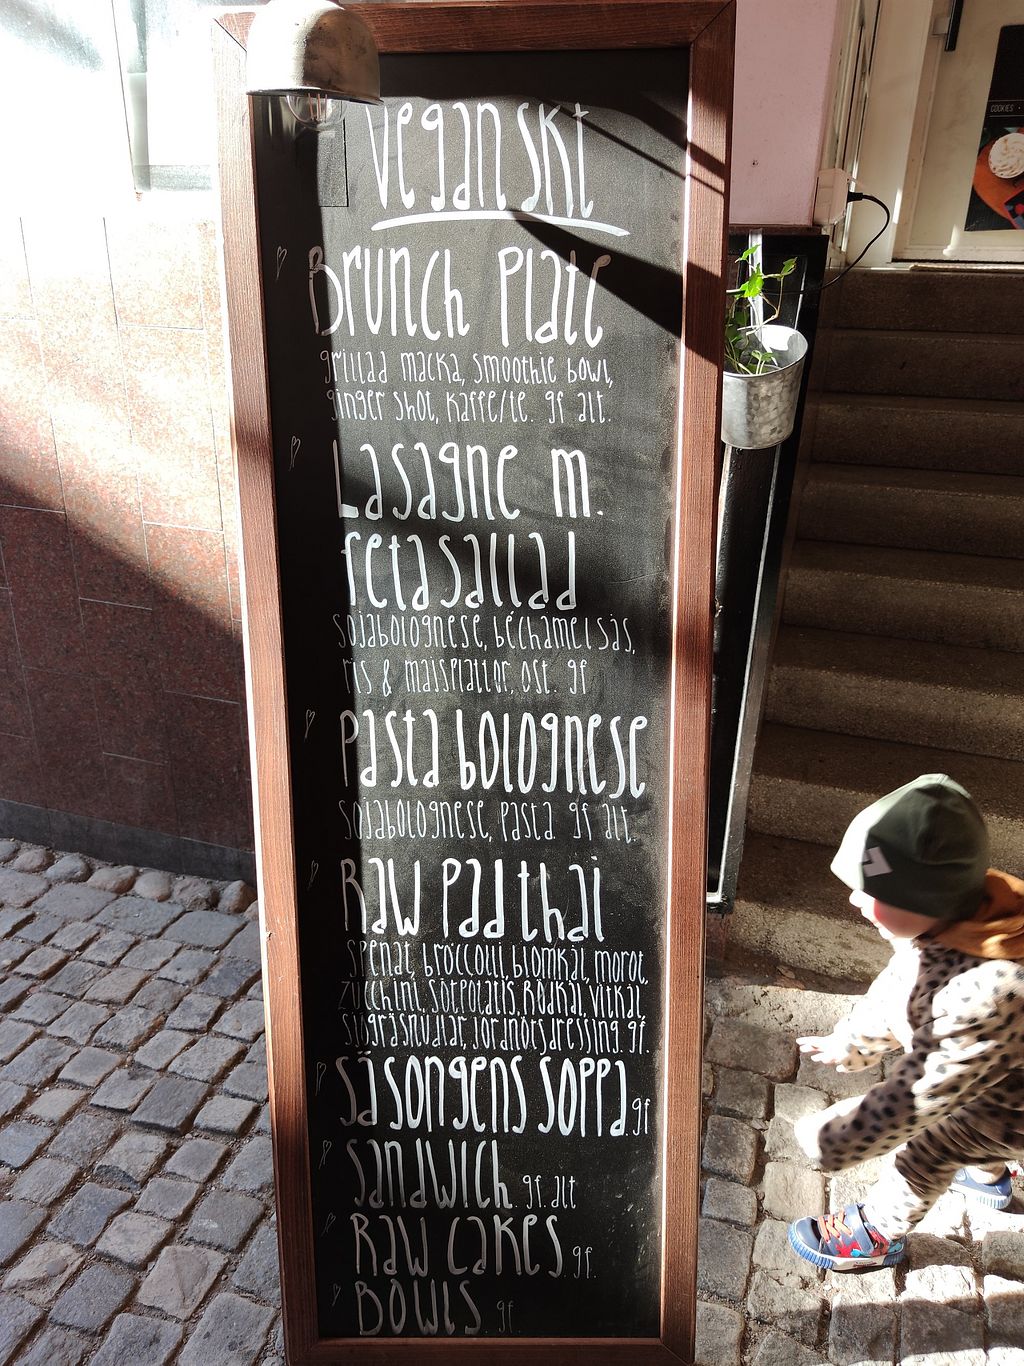 Veganskt
Brunch Plate
grillad macka, smoothie bowl,
ginger shot, kaffe/te. gf alt.
Lasagne m.
fetasallad
sojabolognese, béchamelsås,
ris & majsplattor, ost. gf
Pasta bolognese
sojabolognese, pasta gf alt.
Raw Padthai
spenat, broccoli, blomkål, morot,
zucchini, sötpotatis, rödkål, vitkål,
sjögräsnudlar, jordnötsdressing. gf.
Säsongens soppa. gf
Sandwich. gf alt
Raw cakes. gf.
Bowls. gf.
COOKIES